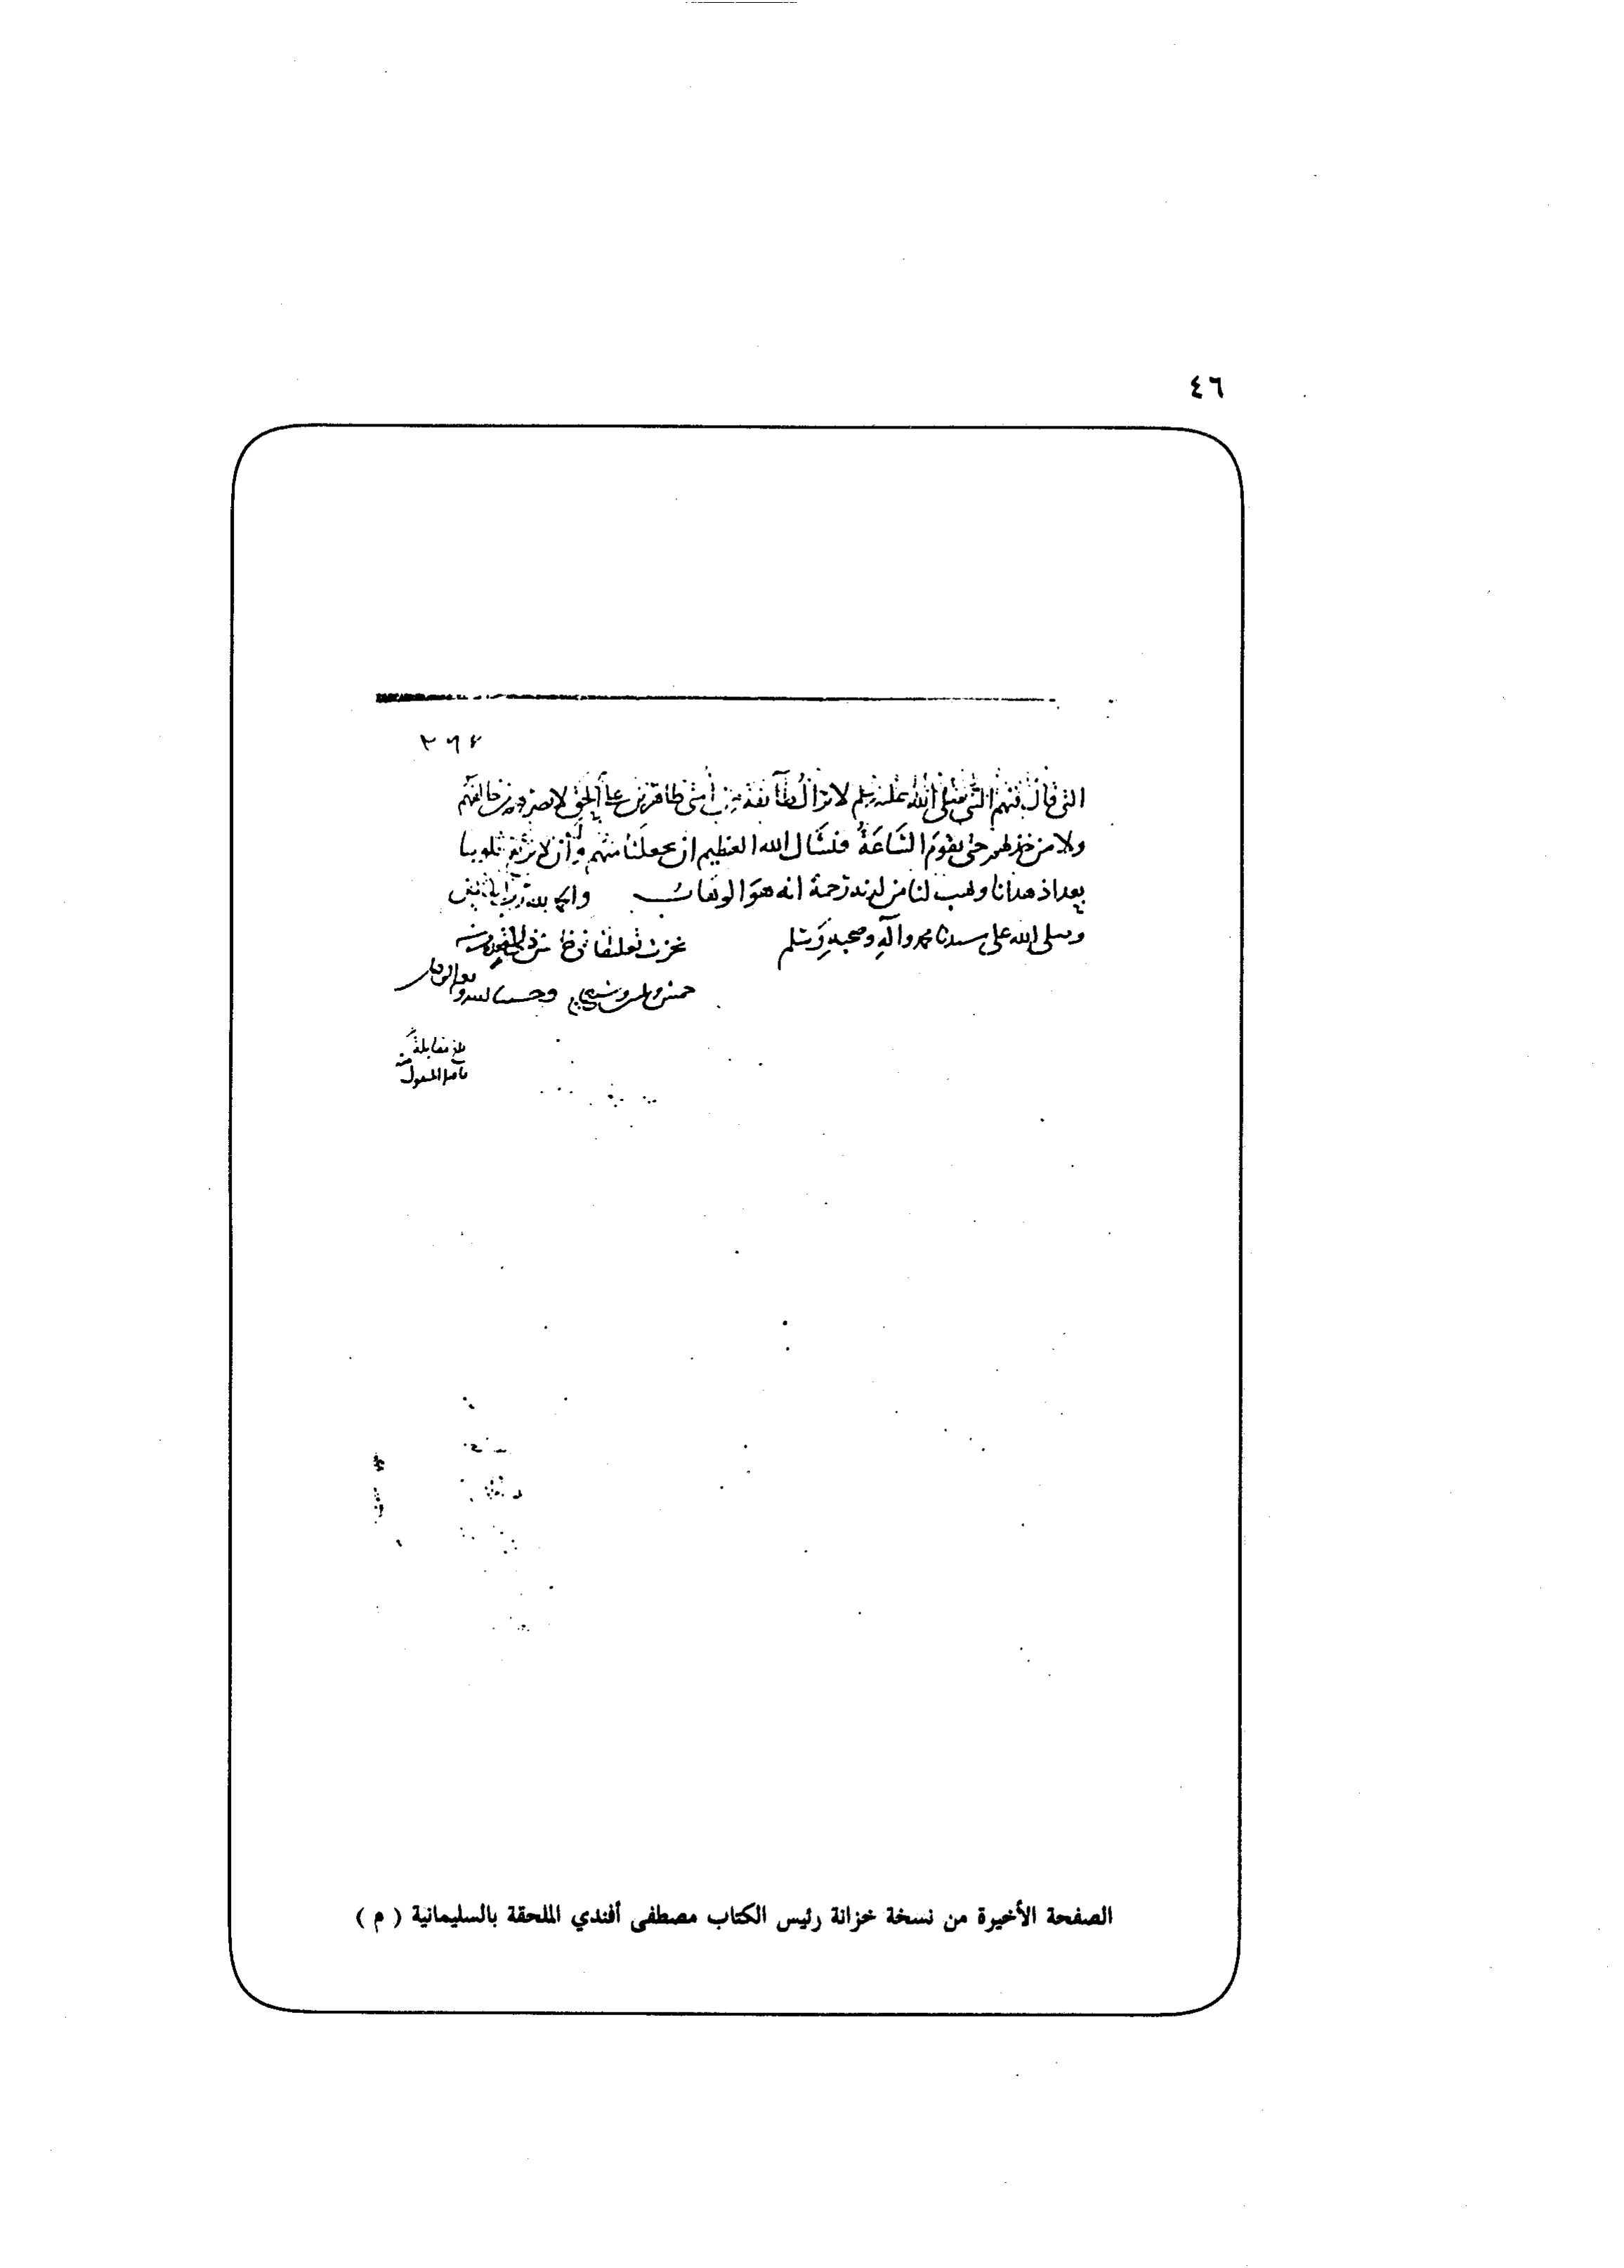 ٤٦
٣٦٤
التى قال فيهم النبى صلى الله عليه وسلم لا تزال طآئفة من أمتى ظاهرين على الحق لا يضرهم من خالفهم
ولا من خذلهم حتى تقوم السَّاعَةُ فنسَّال الله العظيم ان يجعلنا منهم وأن لا يزيغ قلوبنا
بعد اذ هدانا و يهب لنا من لدنه رحمة انه هو الوهاب والحمد لله رب العالمين
وصلى الله على سيدنا محمد وآله وصحبه وسلم نجزت تعليقا فى
خمس وثلاثين وسبعمايه وحسبنا الله ونعم الوكيل
بلغ مقابلة
باصله المنقول منه
الصفحة الأخيرة من نسخة خزانة رئيس الكتاب مصطفى أفندي الملحقة بالسليمانية ( م )